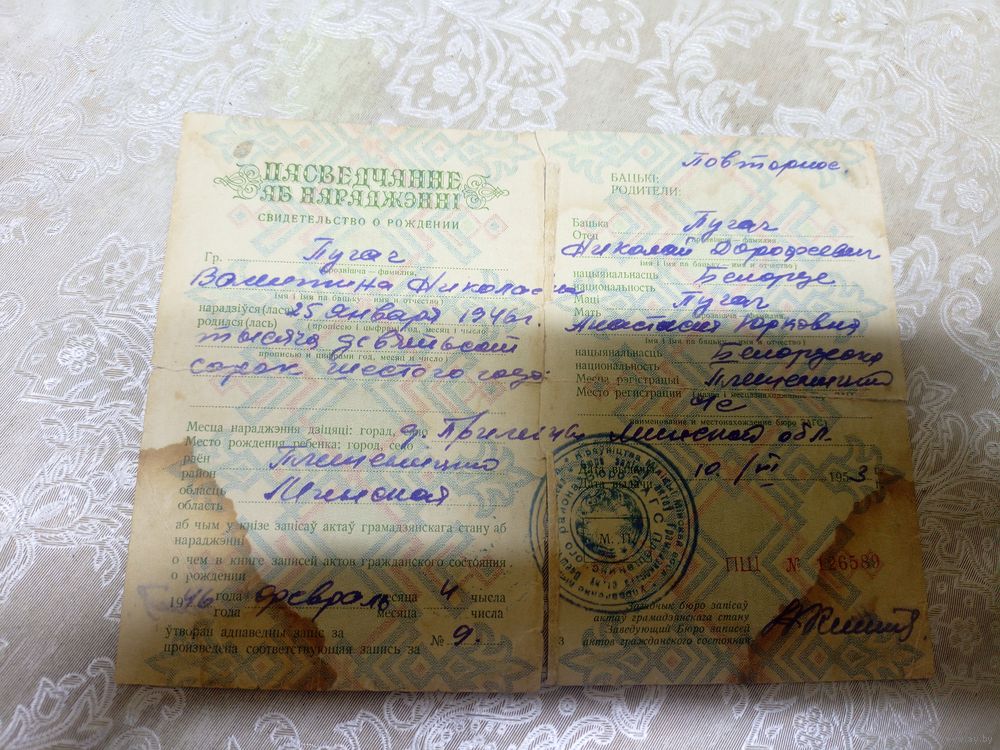 ПАСВЕДЧАННЕ
АБ НАРАДЖЭННІ
СВИДЕТЕЛЬСТВО О РОЖДЕНИИ
Гр. Пугач
прозвішча – фамилия,
Валентина Николаевна
імя і імя па бацьку – имя и отчество)
нарадзіўся(лась) 25 января 1946г
родился(лась) (прописсю і цыфрамі год, месяц і чысло
тысяча девятьсот
прописью и цифрами год, месяц и число)
сорок шестого года.
Месца нараджэння дзіцяці: горад, сяло
Место рождения ребенка: город, село
раён Плещеницкий
район
область Минская
область
аб чым у кнізе запісаў актаў грамадзянскага стану аб
нараджэнні
о чем в книге записей актов гражданского состояния
о рождении
1946 года февраль месяца 4 чысла
года месяца числа
утворан адпаведны запіс за № 9.
произведена соответствующая запись за
Повторное.
БАЦЬКІ:
РОДИТЕЛИ:
Бацька Пугач
Отец прозвішча – фамилия
Николай Дорофеевич
імя і імя па бацьку – имя и отчество)
нацыянальнасць Белорус
национальность
Маці Пугач
Мать прозвішча – фамилия
Анастасия
(імя і імя па бацьку – имя и отчество)
нацыянальнасць Белоруска
национальность
Месца рэгістрацыі Плещеницкий
Место регистрации
наименование и местонахождение бюро ЗАГС)
Минской обл.
Дата выдачи 10/III 1953
М. П.
ПЩ № 126589
Загадчык бюро запісаў
актаў грамадзянскага стану
Заведующий Бюро записей
актов гражданского состояния
3